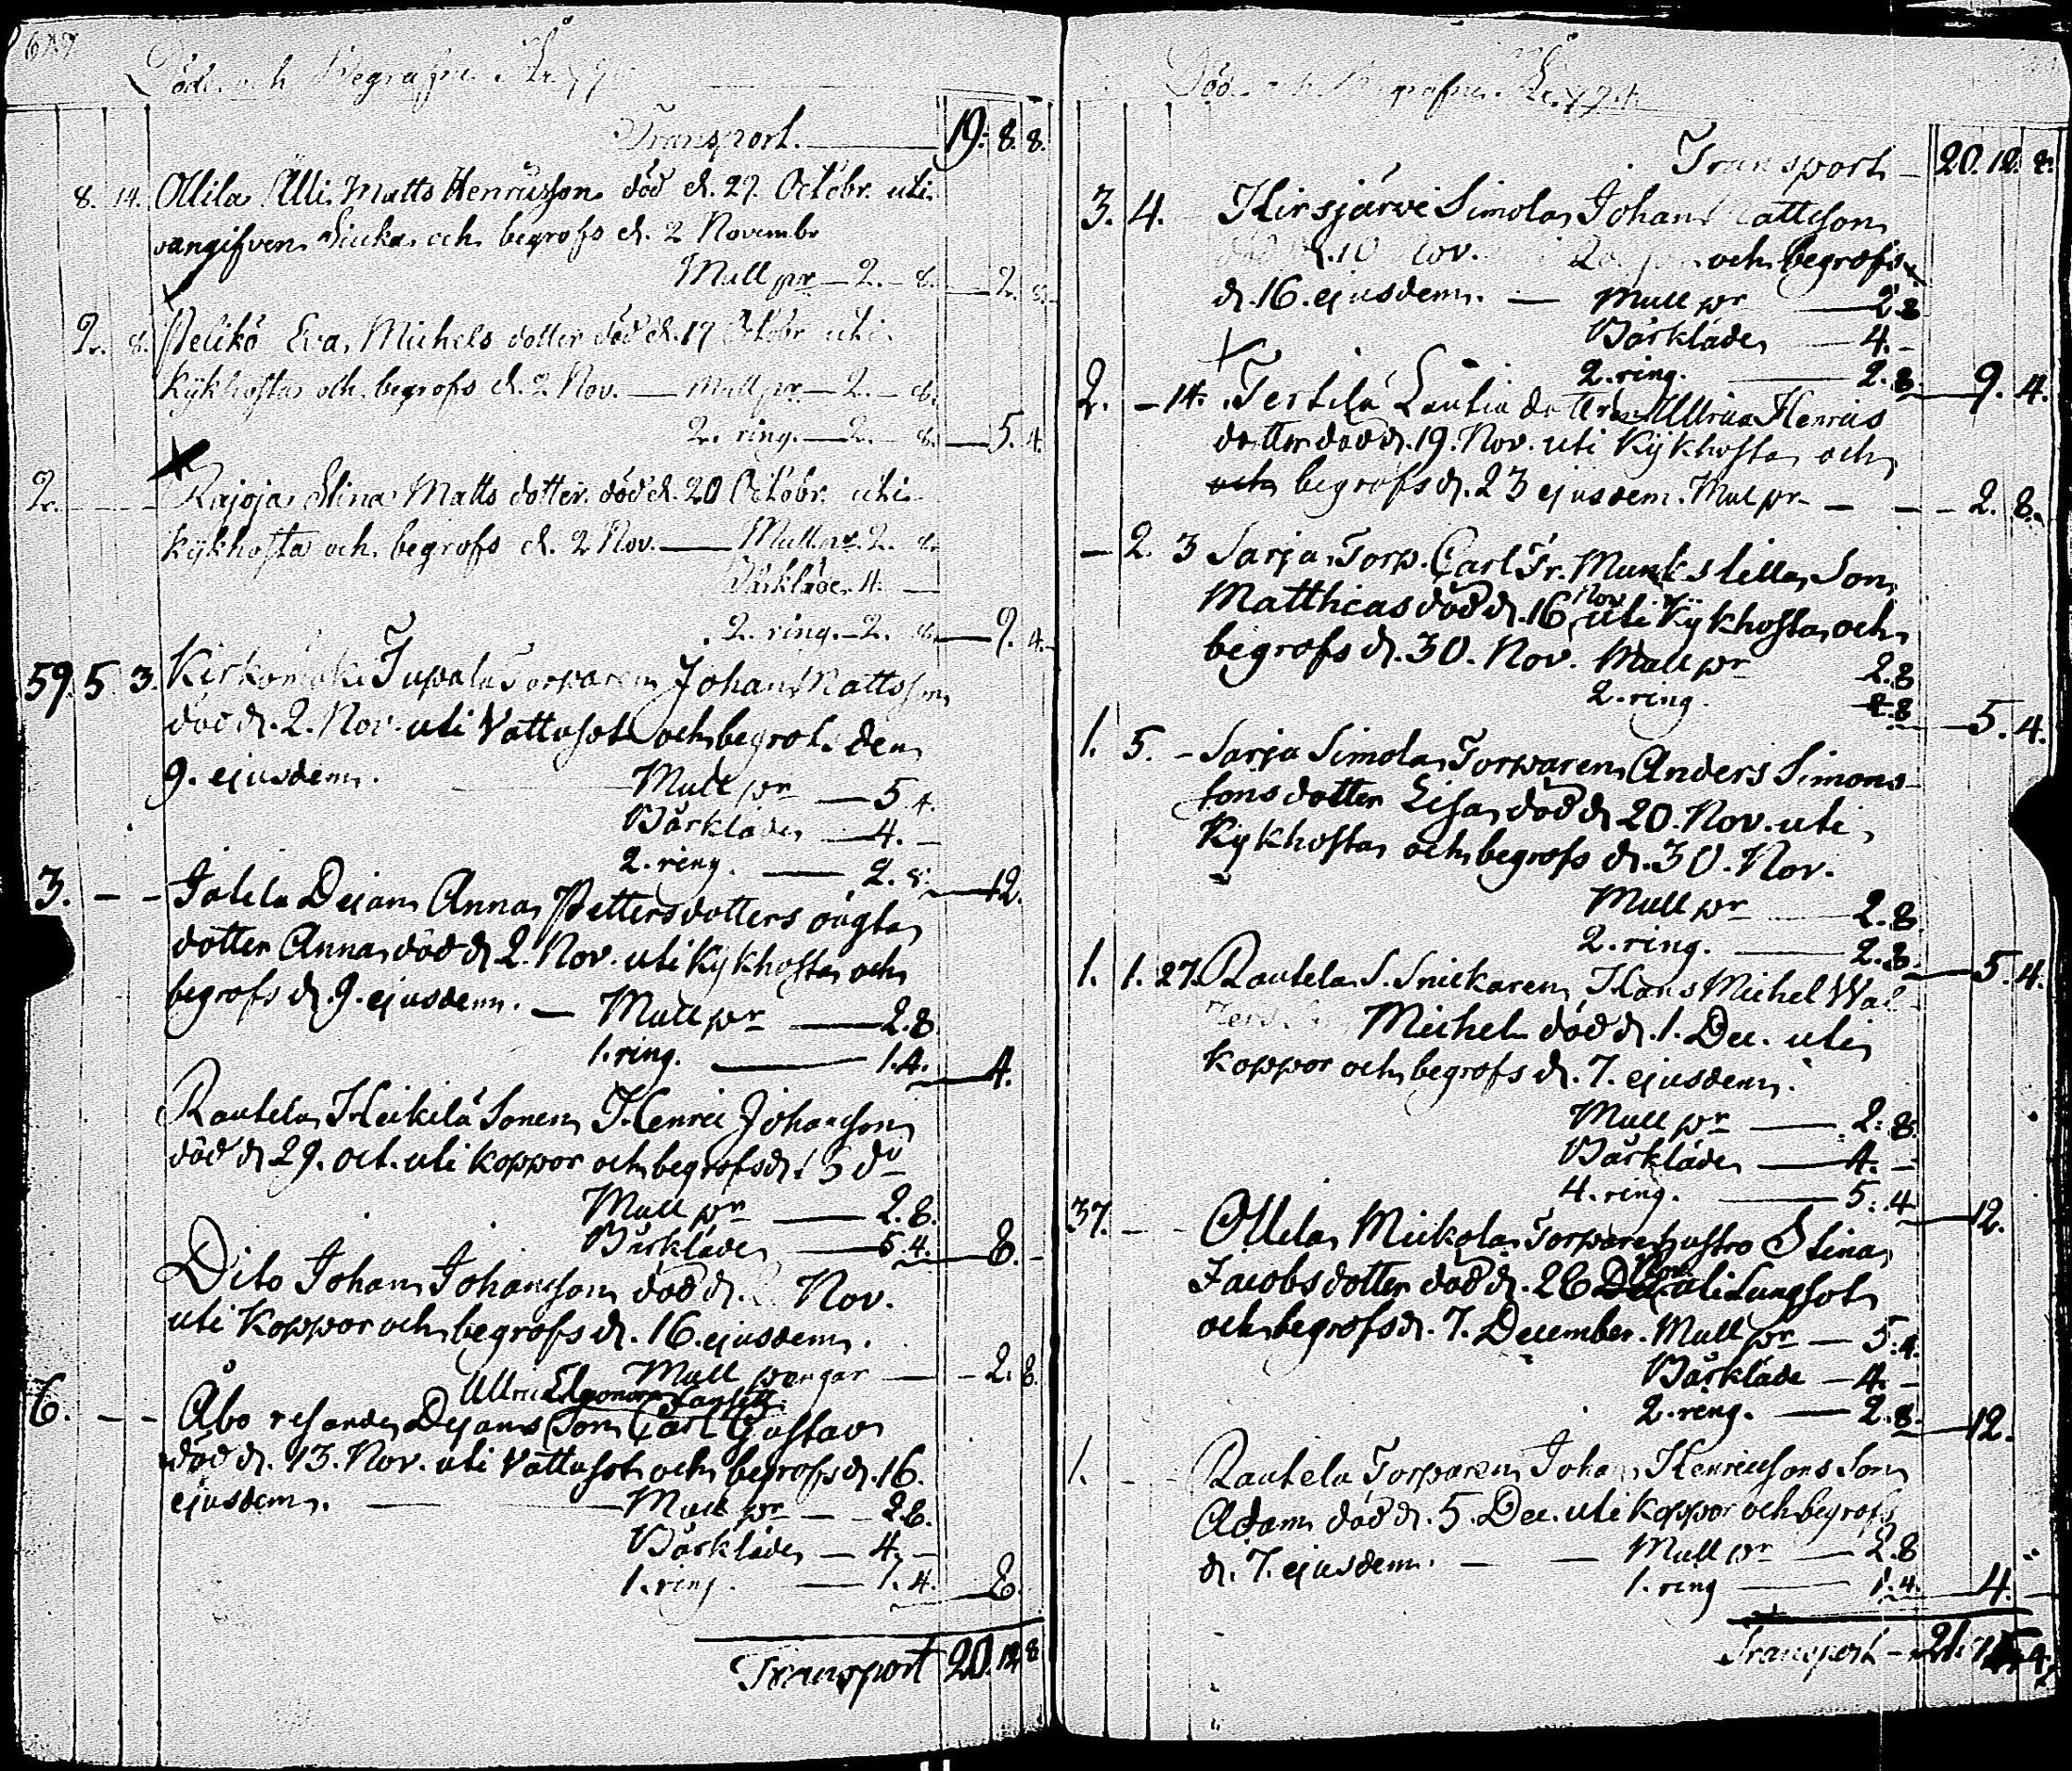 Döde och Begrafne År
Transport. 19. 8. 8.
8. 14. Ollila Alli Matts Henricsson död d. 27. Octobr. uti
oangifven Siuka och begrofs d. 2 Novembr
Mull pr 2. 8. 2. 8.
2. 8. Pelikö Eva Michels dotter död d. 17 Octobr uti
Kykhosta och begrofs d. 2 Nov. Mull pr 2. 8.
2. ring. 2. 8. 5. 4.
2. Rajoja Stina Matts dotter död d. 20 Octobr. uti
Kykhosta och begrofs d. 2 Nov. Mull pr. 2. 8.
Bårkläde 4.
2. ring. 2. 8. 9. 4.
59. 5 3. Tupala Torparen Johan Mattsson
död d. 2. Nov. uti Vattusot och begrof. den
9. ejusdem. Mull pr 5. 4.
Bårkläde 4. -
2. ring. 2. 8. 12.
3. - - Deijan Anna Pettersdotters oägta
dotter Anna död d. 2. Nov. uti Kykhosta och
begrofs d. 9. ejusdem. Mull pr 2. 8.
1. ring. 1. 4. 4.
Rautela Heikilä Sonen Henric Johansson
död d. 29. oct. uti koppor och begrofs d.
Mull pr 2. 8.
Bårkläde 5. 4. 8. -
Dito Johan Johansson död d. Nov.
uti Koppor och begrofs d. 16. ejusdem.
Mull pengar 2. 8.
Ullrica Eleonora
6. - - Åbo resande Dejans Son Carl Gustav
död d. 13. Nov. uti Vattusot och begrofs d. 16.
ejusdem. Mull pr 2. 8.
Bårkläde 4. -
1. ring. 1. 4. 8.
Transport 20. 12. 8
Döde och Begrafne År
Transport 20. 12. 8.
3. 4. Kirsjärvi Simola Johan Mattsson
10 Nov. och begrofs
d. 16. ejusdem. Mull pr 2. 8
Bårkläde 4. -
2. ring. 2. 8. 9. 4.
2. - 14. Tertilä Lautia dottren Ullrica Henrics
dotter död d. 19. Nov. uti Kykhosta och
och begrofs d. 23 ejusdem. Mul pr 2. 8.
- 2. 3 Sarja Torp. Carl Fr. Munks lilla Son
Matthias död d. 16 Nov uti Kykhosta och
begrofs d. 30. Nov. Mull pr 2. 8
2. ring. 2. 8 5. 4.
1. 5. - Sarja Simola Torparen Anders Simons
sons dotter Lisa död d 20. Nov. uti
Kykhosta och begrofs d. 30. Nov.
Mull pr 2. 8.
2. ring. 2. 8. 5. 4.
1. 1. 27. Rautela S. Snickaren Hans Michel
Michel död d. 1. Dec. uti
koppor och begrofs d. 7. ejusdem.
Mull pr 2. 8.
Bårkläde 4. -
4. ring. 5. 4 12.
37. - - Ollila Mickola Torpare hustro Stina
Jacobs dotter död d. 26 Nov. uti Lungsot
och begrofs d. 7. December. Mull pr 5. 4.
Bårkläde 4. -
2. ring. 2. 8. 12.
1. - - Rautela Torparen Johan Henricssons Son
Adam död d. 5. Dec. uti koppor och begrofs
d. 7. ejusdem. Mull pr 2. 8
1. ring 1. 4. 4.
Transport